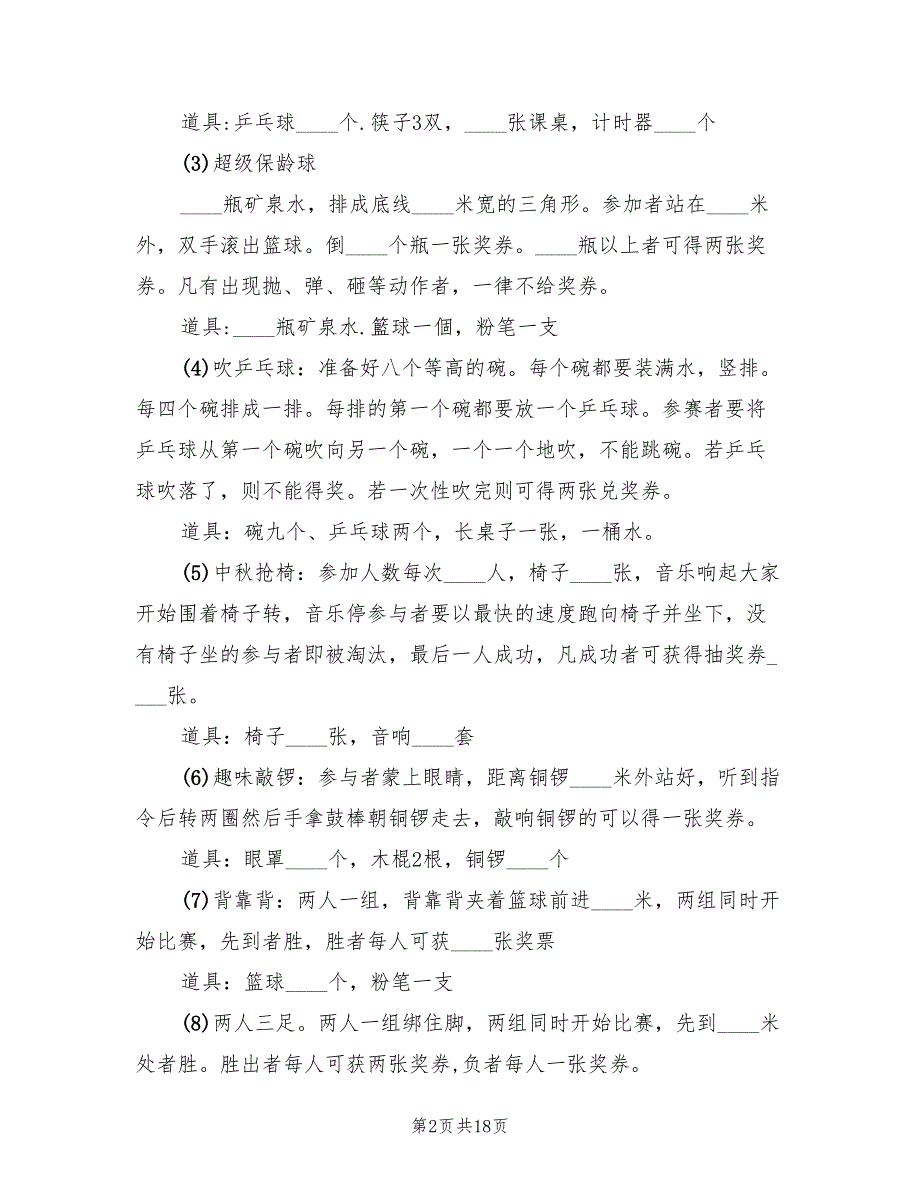 道具:乒乓球____个.筷子3双，____张课桌，计时器____个
(3)超级保龄球
____瓶矿泉水，排成底线____米宽的三角形。参加者站在____米
外，双手滚出篮球。倒____个瓶一张奖券。____瓶以上者可得两张奖
券。凡有出现抛、弹、砸等动作者，一律不给奖券。
道具:____瓶矿泉水.籃球一個，粉笔一支
(4)吹乒乓球：准备好八个等高的碗。每个碗都要装满水，竖排。
每四个碗排成一排。每排的第一个碗都要放一个乒乓球。参赛者要将
乒乓球从第一个碗吹向另一个碗，一个一个地吹，不能跳碗。若乒乓
球吹落了，则不能得奖。若一次性吹完则可得两张兑奖券。
道具：碗九个、乒乓球两个，长桌子一张，一桶水。
(5)中秋抢椅：参加人数每次____人，椅子____张，音乐响起大家
开始围着椅子转，音乐停参与者要以最快的速度跑向椅子并坐下，没
有椅子坐的参与者即被淘汰，最后一人成功，凡成功者可获得抽奖券_
___张。
道具：椅子____张，音响____套
(6)趣味敲锣：参与者蒙上眼睛，距离铜锣____米外站好，听到指
令后转两圈然后手拿鼓棒朝铜锣走去，敲响铜锣的可以得一张奖券。
道具：眼罩____个，木棍2根，铜锣____个
(7)背靠背：两人一组，背靠背夹着篮球前进____米，两组同时开
始比赛，先到者胜，胜者每人可获____张奖票
道具：篮球____个，粉笔一支
(8)两人三足。两人一组绑住脚，两组同时开始比赛，先到____米
处者胜。胜出者每人可获两张奖券,负者每人一张奖券。
第2页共18页